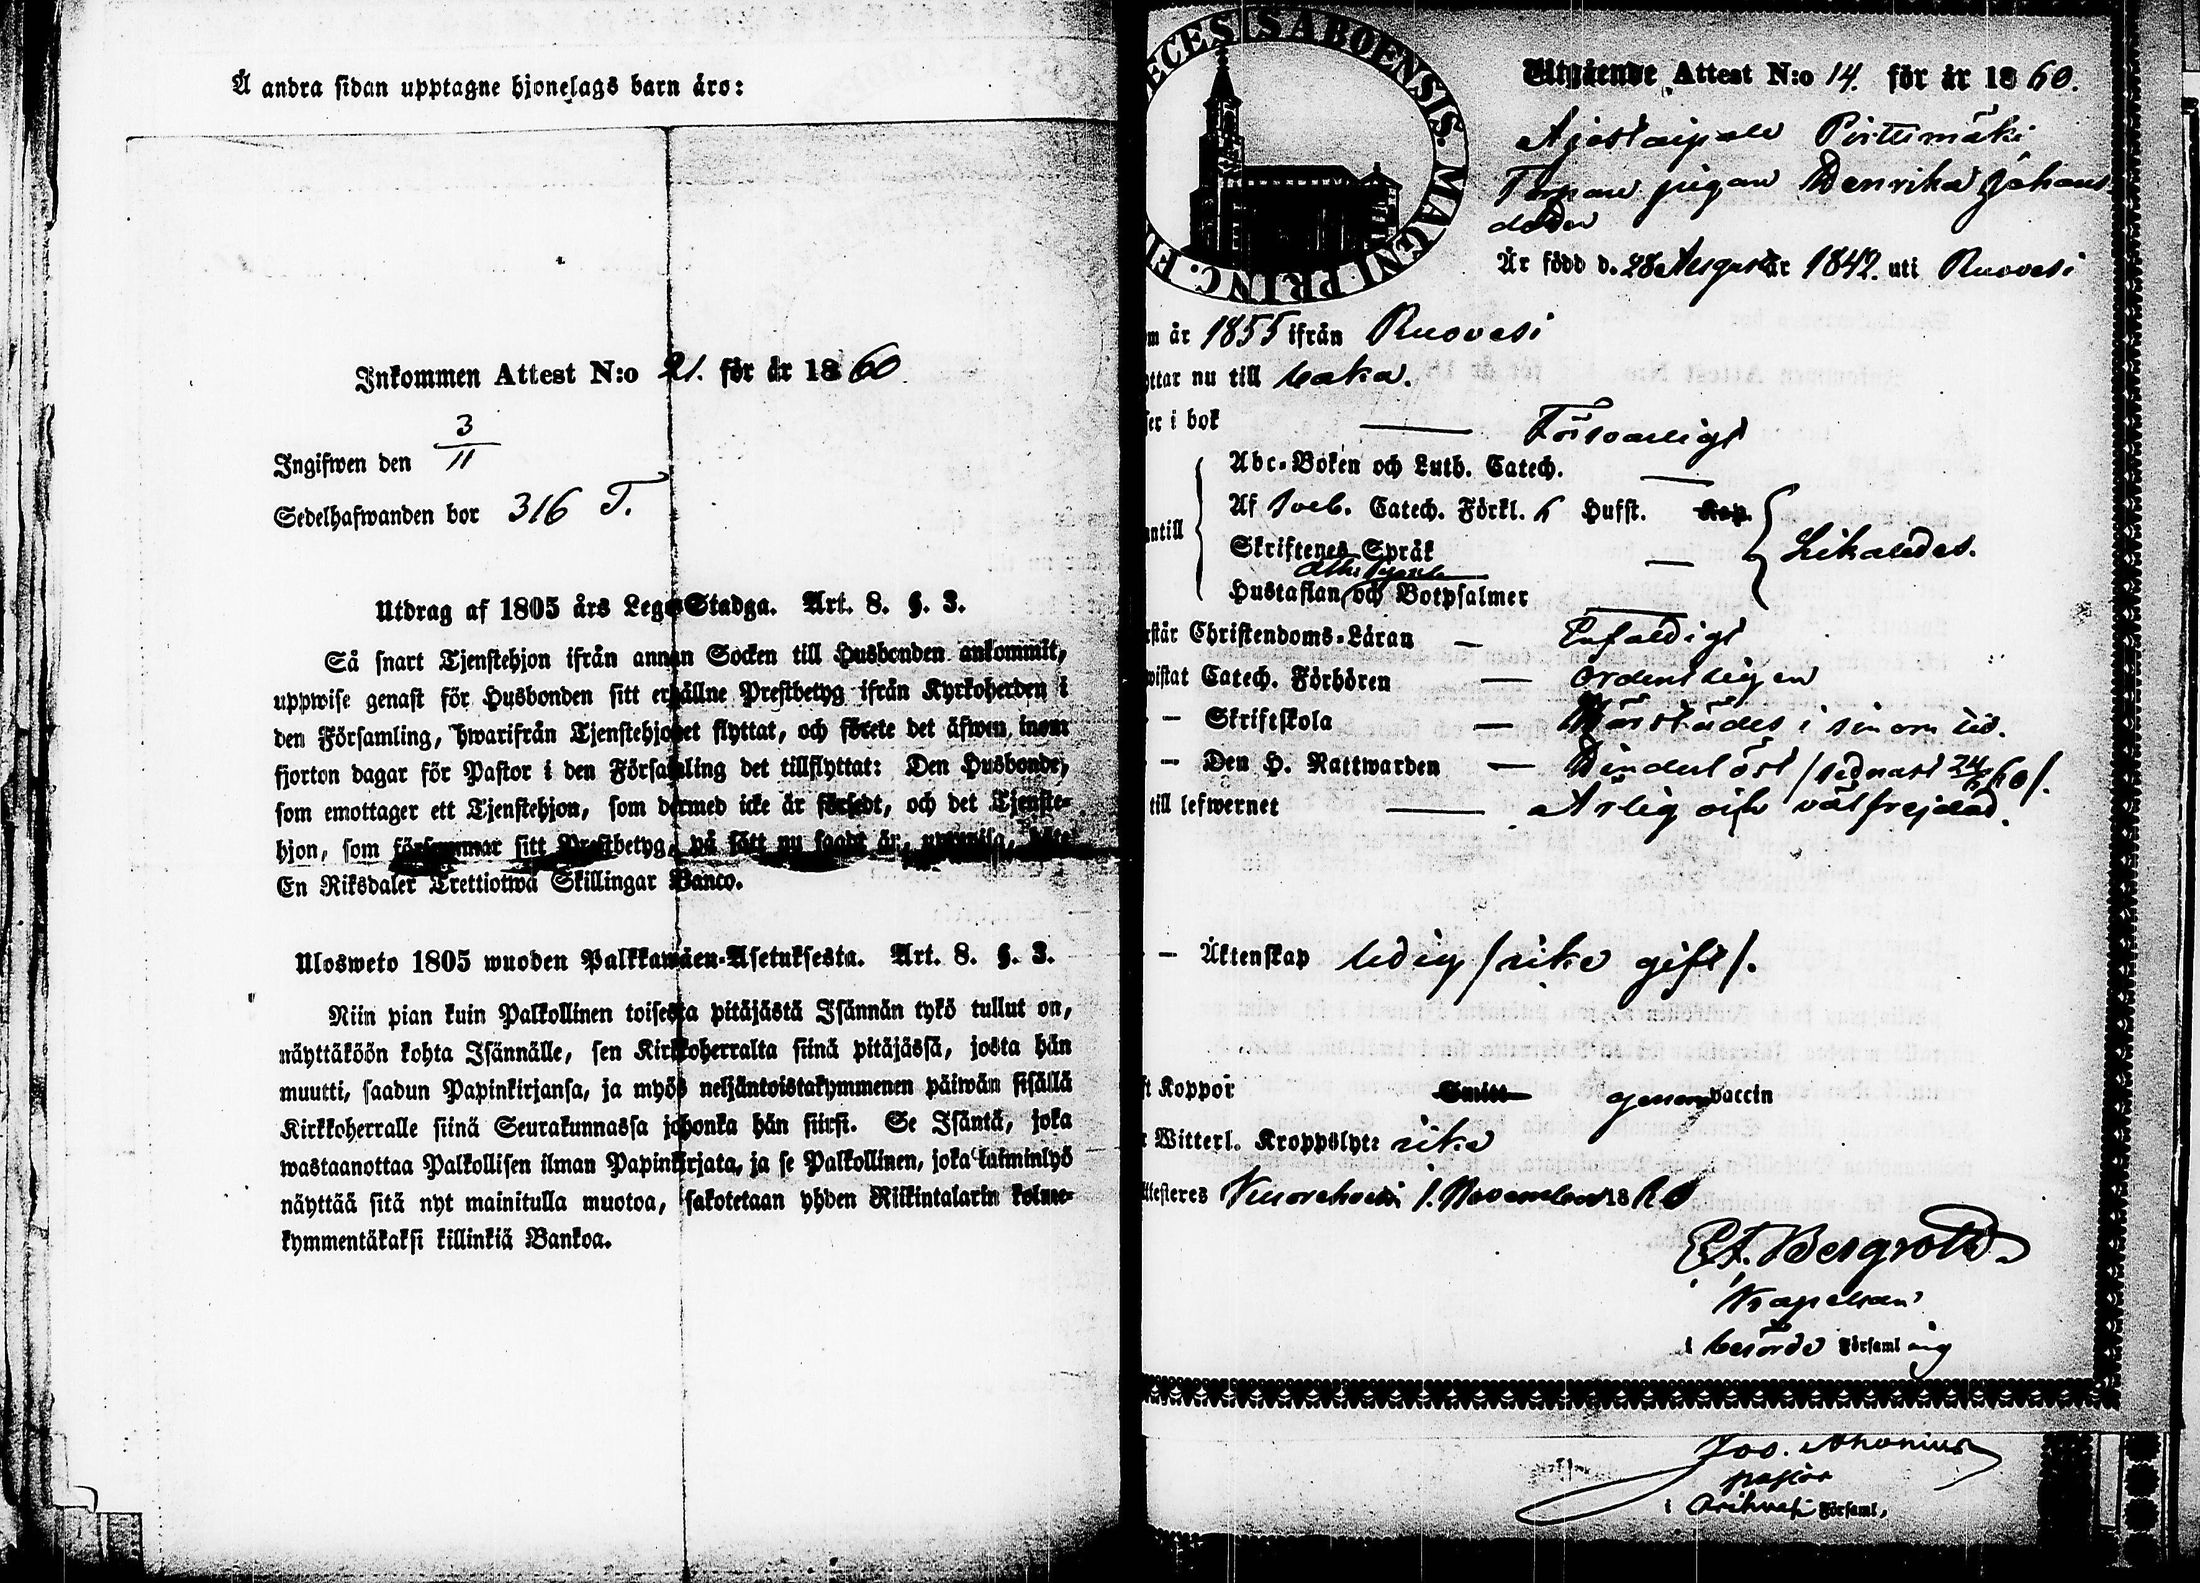 Å andra sidan upptagne hjonelags barn äro:
Inkommen Attest N:o 21. för år 1860
Ingifwen den 3/11
Sedelhafwanden bor 316 T.
Utdrag af 1805 års Lego-Stadga. Art. 8. §. 3.
Så snart Tjenstehjon ifrån annan Socken till Husbonden ankommit,
uppwise genast för Husbonden sitt erhållne Prestbetyg ifrån Kyrkoherden i
den Församling, hwarifrån Tjenstehjonet flyttat, och förete det äfwen inom
fjorton dagar för Pastor i den Församling det tillflyttat: Den Husbonde,
som emottager ett Tjenstehjon, som dermed icke är försedt, och det Tjenste-
hjon, som försummar sitt Prestbetyg, på sätt nu sagdt är, uppwisa, böte
En Riksdaler Trettiotwå Skillingar Banco.
Ulosweto 1805 wuoden Palkkawäen-Asetuksesta. Art. 8. §. 3.
Niin pian kuin Palkollinen toisesta pitäjästä Isännän tykö tullut on,
näyttäköön kohta Isännälle, sen Kirkkoherralta siinä pitäjässä, josta hän
muutti, saadun Papinkirjansa, ja myös neljäntoistakymmenen päiwän sisällä
Kirkkoherralle siinä Seurakunnassa johonka hän siirsi. Se Isäntä, joka
wastaanottaa Palkollisen ilman Papinkirjata, ja se Palkollinen, joka laiminlyö
näyttää sitä nyt mainitulla muotoa, sakotetaan yhden Riikintalarin kolme-
kymmentäkaksi killinkiä Bankoa.
ECESIS ABOENSIS. MAGNI PRINC. FI
Utgående Attest N:o 14. för år 1860.
Ajostaipale Pirttimäki
Torpare pigan Henrika Johans
dotter
Är född d. 28 Augusti år 1842. uti Ruovesi
m år 1855 ifrån Ruovesi
ttar nu till
ser i bok — Försvarligt
Abc-Boken och Luth. Catech. —
Af Sveb. Catech. Förkl. Hufst.
ntill
Skriftenes Språk —
Likaledes.
Hustaflan, och Botpsalmer
rstår Christendoms-Läran — Enfaldigt
wistat Catech. Förhören — ordentligen
— Skriftskola — Härstädes i sinom tid.
— Den H. Nattwarden — Oinderlöst /sednast 24/ 60/.
till lefwernet — Ärlig och välfrejdad.
— Äktenskap ledig /icke gift/.
ft Koppor Smitt genom vaccin
r Witterl. Kroppslyte icke
ttesteres Kuorehwesi 1. November 1860
E. F. Bergroth
Kapellan
i berörde Församling
Jos. Ahonius
pastor
i Orihvesi Församl,